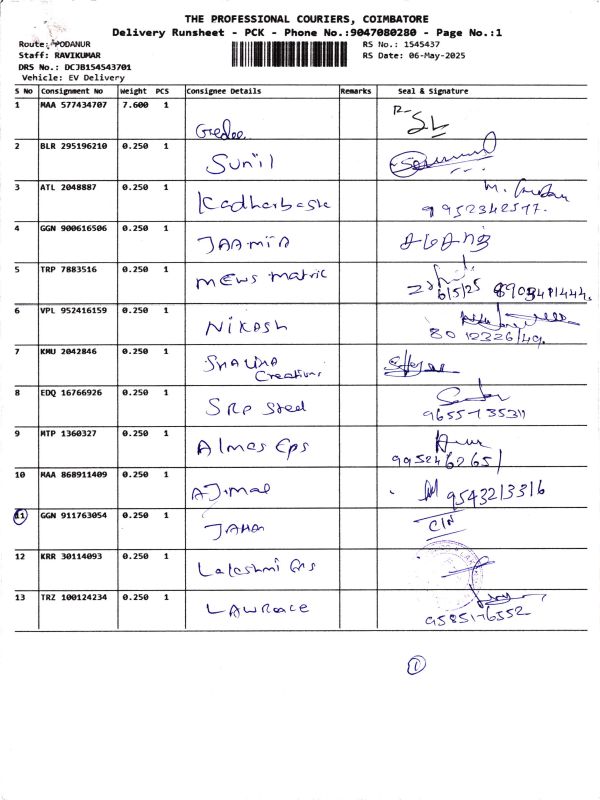 THE PROFESSIONAL COURIERS, COIMBATORE
Delivery Runsheet - PCK - Phone No.:9047080280 - Page No.:1
Route: PODANUR
RS No.: 1545437
Staff: RAVIKUMAR
RS Date: 06-May-2025
DRS No.: DCJB154543701
Vehicle: EV Delivery
S No Consignment No Weight PCS Consignee Details Remarks Seal & Signature
1 MAA 577434707 7.600 1
2 BLR 295196210 0.250 1 Sunil
3 ATL 2048887 0.250 1 Kadharbasha
9952342577.
4 GGN 900616506 0.250 1 JAAMIA
5 TRP 7883516 0.250 1 Mews Matric
6/5/25
6 VPL 952416159 0.250 1 NIKASH
7 KMU 2042846 0.250 1
Creations
8 EDQ 16766926 0.250 1 SRP Steel
9655735311
9 MTP 1360327 0.250 1 Almas Eps
9952462651
10 MAA 868911409 0.250 1 AJmal 9543213316
11 GGN 911763054 0.250 1 C/N
12 KRR 30114093 0.250 1
13 TRZ 100124234 0.250 1
9585176552
1